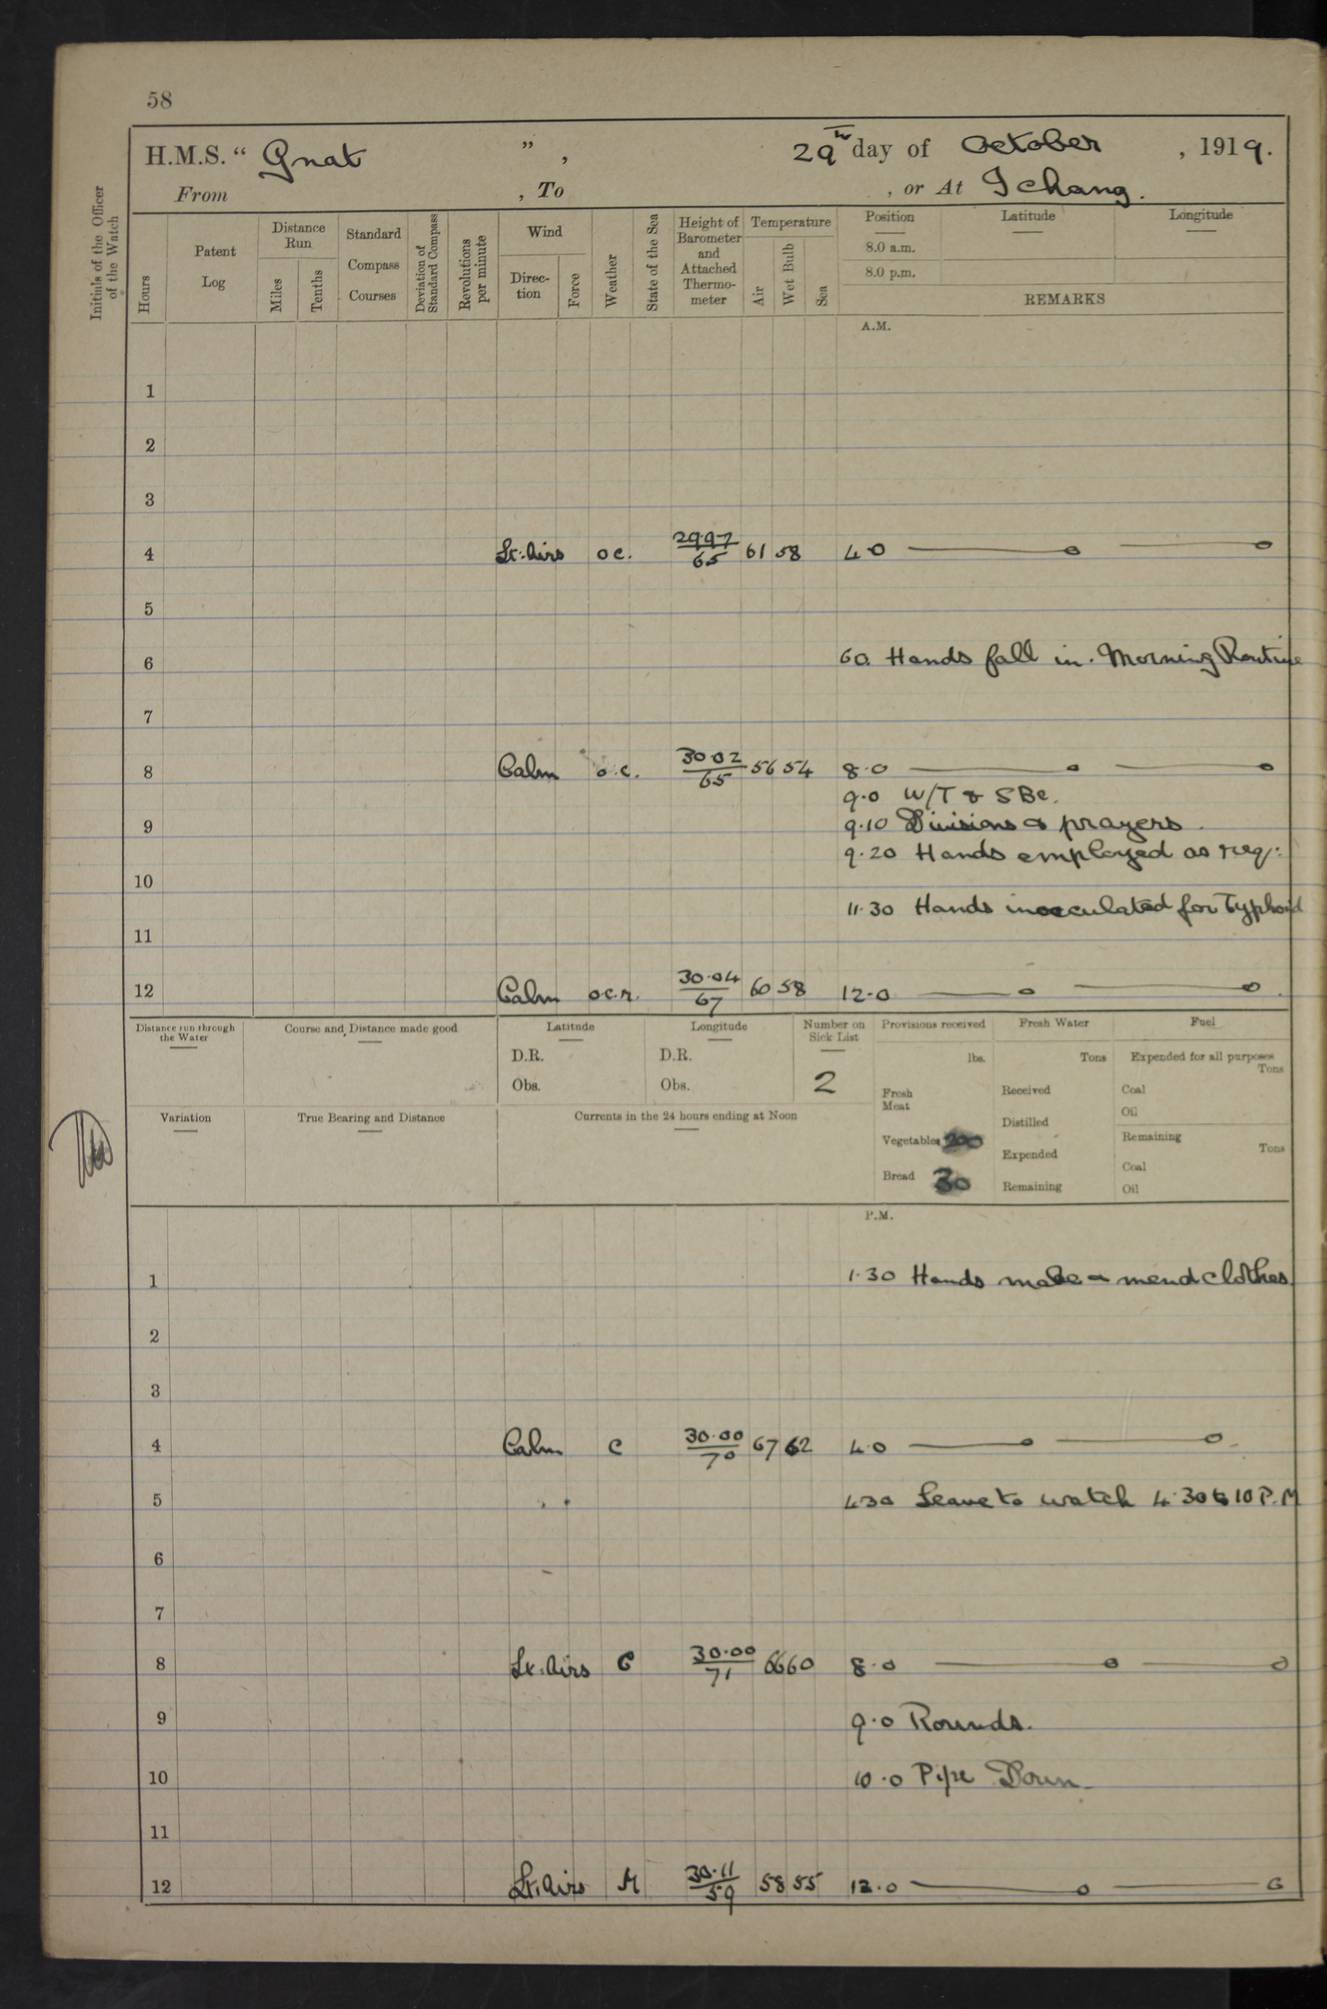 58
H.M.S. “ Gnat ” , 29th day of October , 1919.
From , To , or At Ichang.
Initials of the Officer of the Watch
Hours
Patent Log
Distance Run
Miles
Tenths
Standard Compass Courses
Deviation of Standard Compass
Revolutions per minute
Wind
Direction
Force
Weather
State of the Sea
Height of Barometer and Attached Thermometer
Temperature
Air
Wet Bulb
Sea
Position Latitude Longitude
8.0 a.m.
8.0 p.m.
REMARKS
A.M.
1
2
3
4 Lt: Airs oc. 29.97/65 61 58 4.0
5
6 6.0. Hands fall in. Morning Routine
7
8 Calm o.c. 30.02/65 56 54 8.0
9.0 W/T & SBe.
9 9.10 Divisions & prayers.
9.20 Hands employed as req:
10
11.30 Hands inocculated for Typhoid
11
12 Calm o.c.r. 30.04/67 60 58 12.0
Distance run through the Water
Course and Distance made good
Latitude
D.R.
Obs.
Longitude
D.R.
Obs.
Number on Sick List
2
Provisions received
lbs.
Fresh Meat
Vegetables 200
Bread 30
Fresh Water
Tons
Received
Distilled
Expended
Remaining
Fuel
Expended for all purposes
Tons
Coal
Oil
Remaining
Tons
Coal
Oil
Variation
True Bearing and Distance
Currents in the 24 hours ending at Noon
P.M.
1 1.30 Hands make & mend clothes.
2
3
4 Calm c 30.00/70 67 62 4.0
5 4.30 Leave to watch 4.30 to 10 P.M
6
7
8 Lt. Airs C 30.00/71 66 60 8.0
9 9.0 Rounds.
10 10.0 Pipe Down
11
12 Lt. Airs M 30.11/59 58 55 12.0